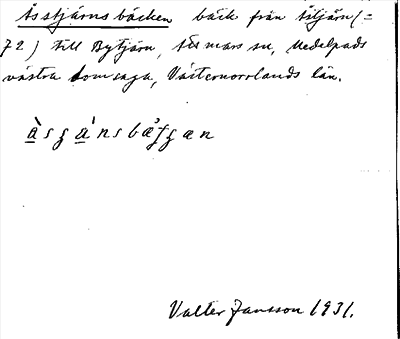 Åsstjärnsbäcken bäck från Åstjärn (=
72) till Bytjärn, Stömars sn, Medelpads
västra domsaga, Västernorrlands län.
Valter Jansson 1931.